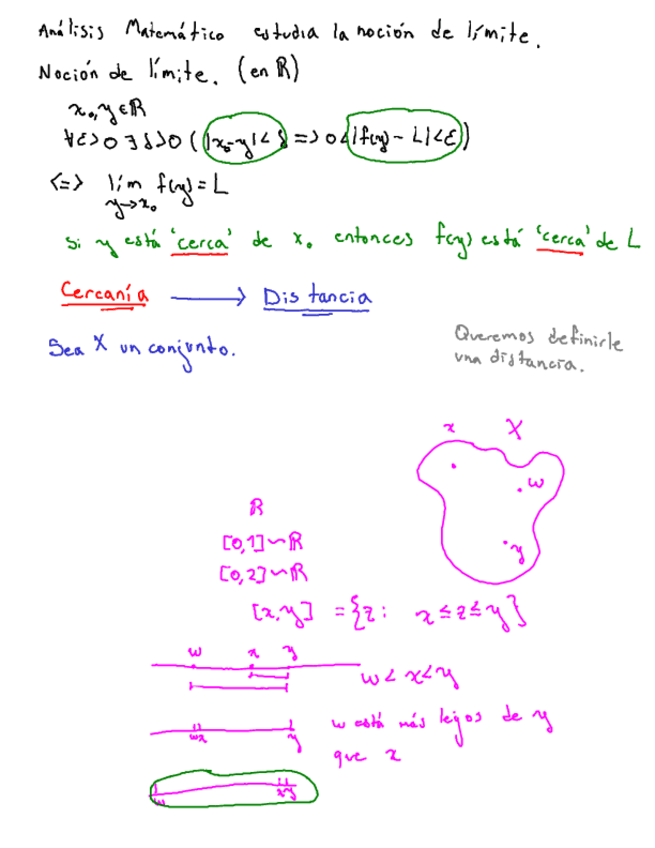 Análisis Matemático estudia la noción de límite.
Noción de límite. (en ℝ)
x₀, y ∈ ℝ
∀ε>0 ∃ δ>0 (|x₀-y|<δ => 0<|f(y) - L|<ε)
<=> lím f(y) = L
y→x₀
Si y está 'cerca' de x₀ entonces f(y) está 'cerca' de L
Cercanía → Distancia
Sea X un conjunto.
Queremos definirle
una distancia.
x X
w
y
ℝ
[0,1] ~ ℝ
[0,2] ~ ℝ
[x,y] = {z: x ≤ z ≤ y}
w x y
w < x < y
w está más lejos de y
que x
wx y
w xy